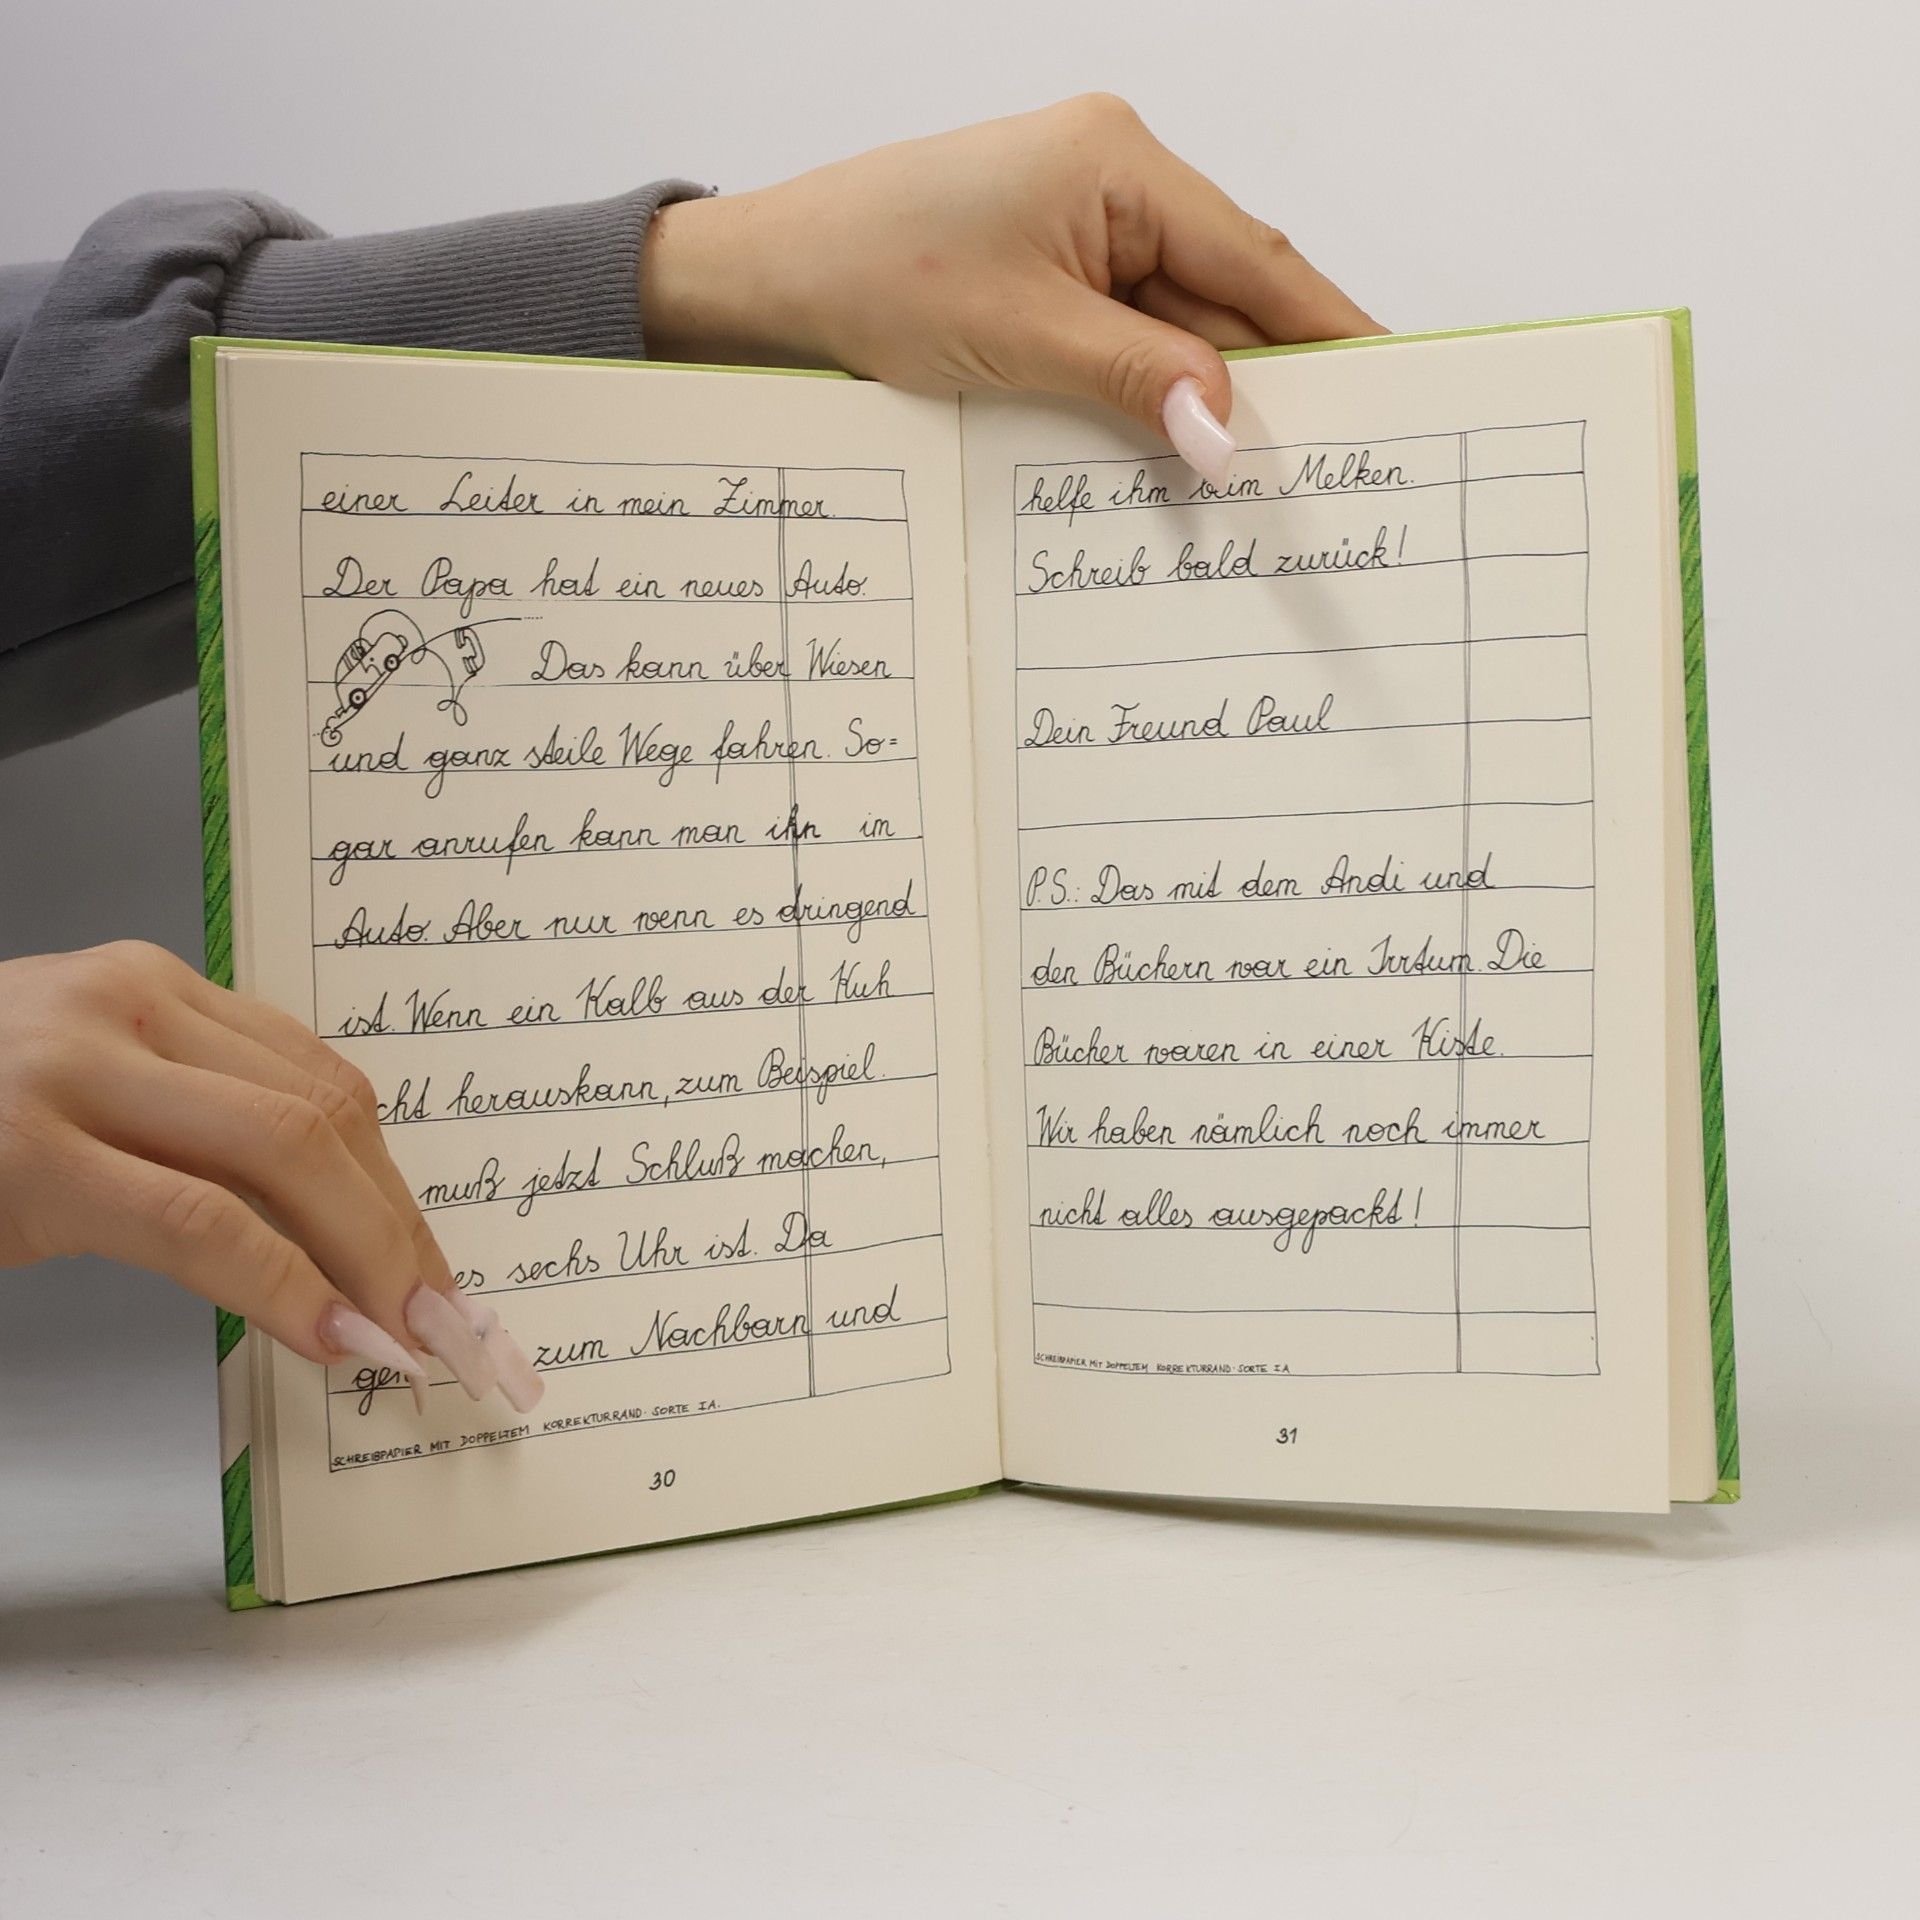 einer Leiter in mein Zimmer.
Der Papa hat ein neues Auto.
Das kann über Wiesen
und ganz steile Wege fahren. So=
gar anrufen kann man ihn im
Auto. Aber nur wenn es dringend
ist. Wenn ein Kalb aus der Kuh
cht herauskann, zum Beispiel.
muß jetzt Schluß machen,
es sechs Uhr ist. Da
zum Nachbarn und
SCHREIBPAPIER MIT DOPPELTEM KORREKTURRAND · SORTE IA.
30
helfe ihm beim Melken.
Schreib bald zurück!
Dein Freund Paul
P.S.: Das mit dem Andi und
den Büchern war ein Irrtum. Die
Bücher waren in einer Kiste.
Wir haben nämlich noch immer
nicht alles ausgepackt!
SCHREIBPAPIER MIT DOPPELTEM KORREKTURRAND · SORTE IA
31